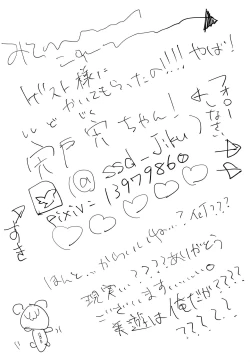 みてい
ゲスト様に
かいてもらったの!!!! やば!
宍戸 宍ちゃん!
フォローしなさい
@ssd_jiku
pixiv= 13979860
ほんと…かわいいね…? 何???
現実…????ありがとう
ございます……。
美遊は俺だが????
?????